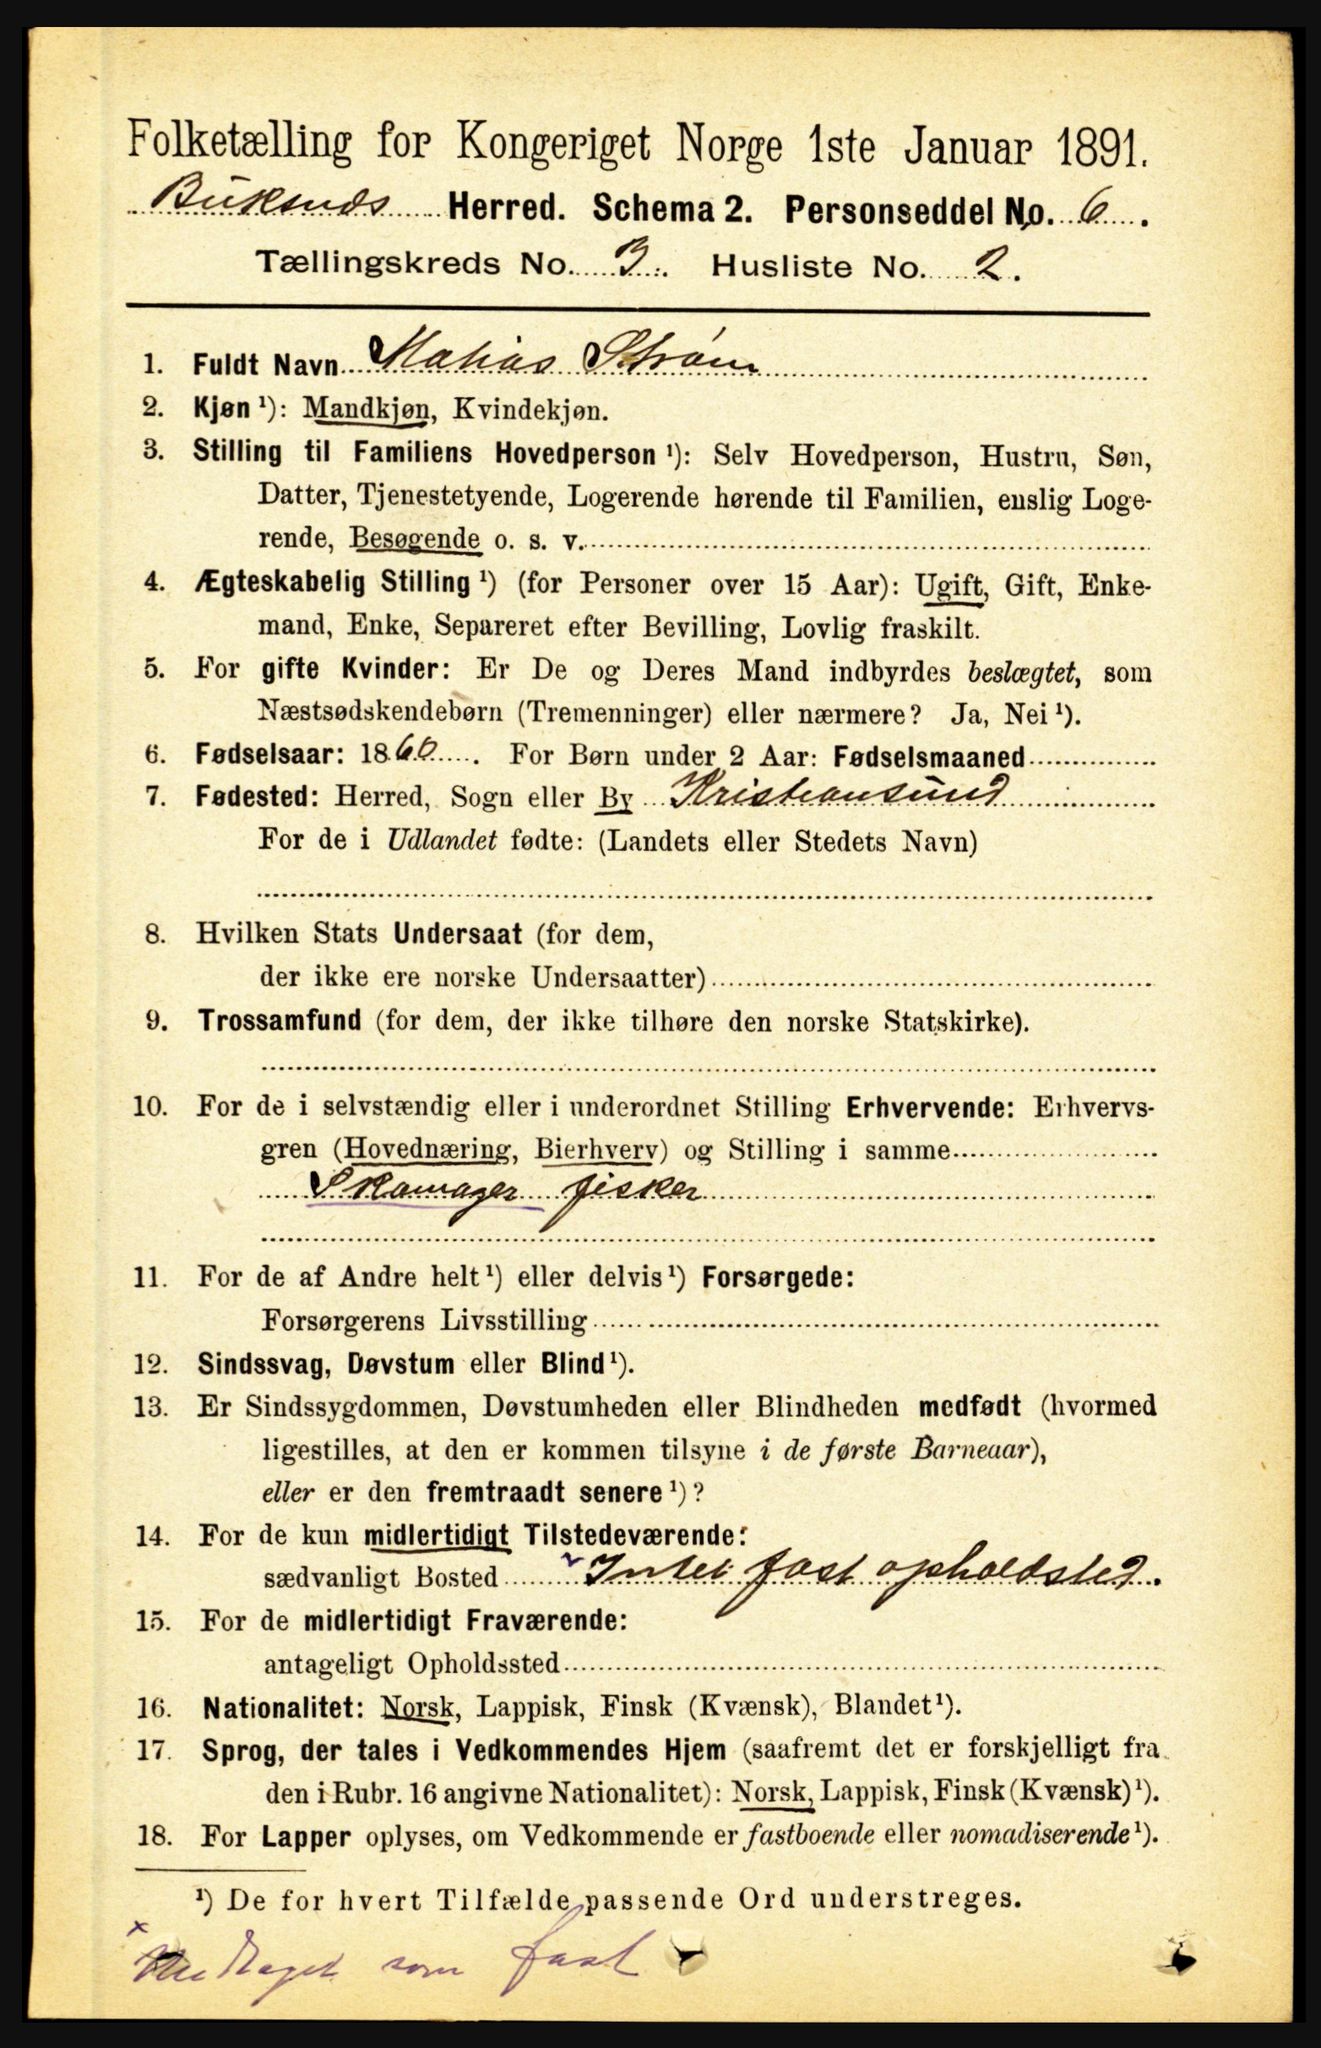 Folketælling for Kongeriget Norge 1ste Januar 1891.
Buksnes Herred. Schema 2. Personseddel No. 6.
Tællingskreds No. 3. Husliste No. 2.
1. Fuldt Navn Mathias Strøm
2. Kjøn ¹): Mandkjøn, Kvindekjøn.
3. Stilling til Familiens Hovedperson ¹): Selv Hovedperson, Hustru, Søn,
Datter, Tjenestetyende, Logerende hørende til Familien, enslig Loge-
rende, Besøgende o. s. v.
4. Ægteskabelig Stilling ¹) (for Personer over 15 Aar): Ugift, Gift, Enke-
mand, Enke, Separeret efter Bevilling, Lovlig fraskilt.
5. For gifte Kvinder: Er De og Deres Mand indbyrdes beslægtet, som
Næstsødskendebørn (Tremenninger) eller nærmere? Ja, Nei ¹).
6. Fødselsaar: 1860. For Børn under 2 Aar: Fødselsmaaned
7. Fødested: Herred, Sogn eller By Kristiansund
For de i Udlandet fødte: (Landets eller Stedets Navn)
8. Hvilken Stats Undersaat (for dem,
der ikke ere norske Undersaatter)
9. Trossamfund (for dem, der ikke tilhøre den norske Statskirke).
10. For de i selvstændig eller i underordnet Stilling Erhvervende: Erhvervs-
gren (Hovednæring, Bierhverv) og Stilling i samme
Skomager fisker
11. For de af Andre helt ¹) eller delvis ¹) Forsørgede:
Forsørgerens Livsstilling
12. Sindssvag, Døvstum eller Blind ¹).
13. Er Sindssygdommen, Døvstumheden eller Blindheden medfødt (hvormed
ligestilles, at den er kommen tilsyne i de første Barneaar),
eller er den fremtraadt senere ¹)?
14. For de kun midlertidigt Tilstedeværende:
sædvanligt Bosted Intet fast opholdsted.
15. For de midlertidigt Fraværende:
antageligt Opholdssted
16. Nationalitet: Norsk, Lappisk, Finsk (Kvænsk), Blandet ¹).
17. Sprog, der tales i Vedkommendes Hjem (saafremt det er forskjelligt fra
den i Rubr. 16 angivne Nationalitet): Norsk, Lappisk, Finsk (Kvænsk) ¹).
18. For Lapper oplyses, om Vedkommende er fastboende eller nomadiserende ¹).
¹) De for hvert Tilfælde passende Ord understreges.
x
Medtaget som fast